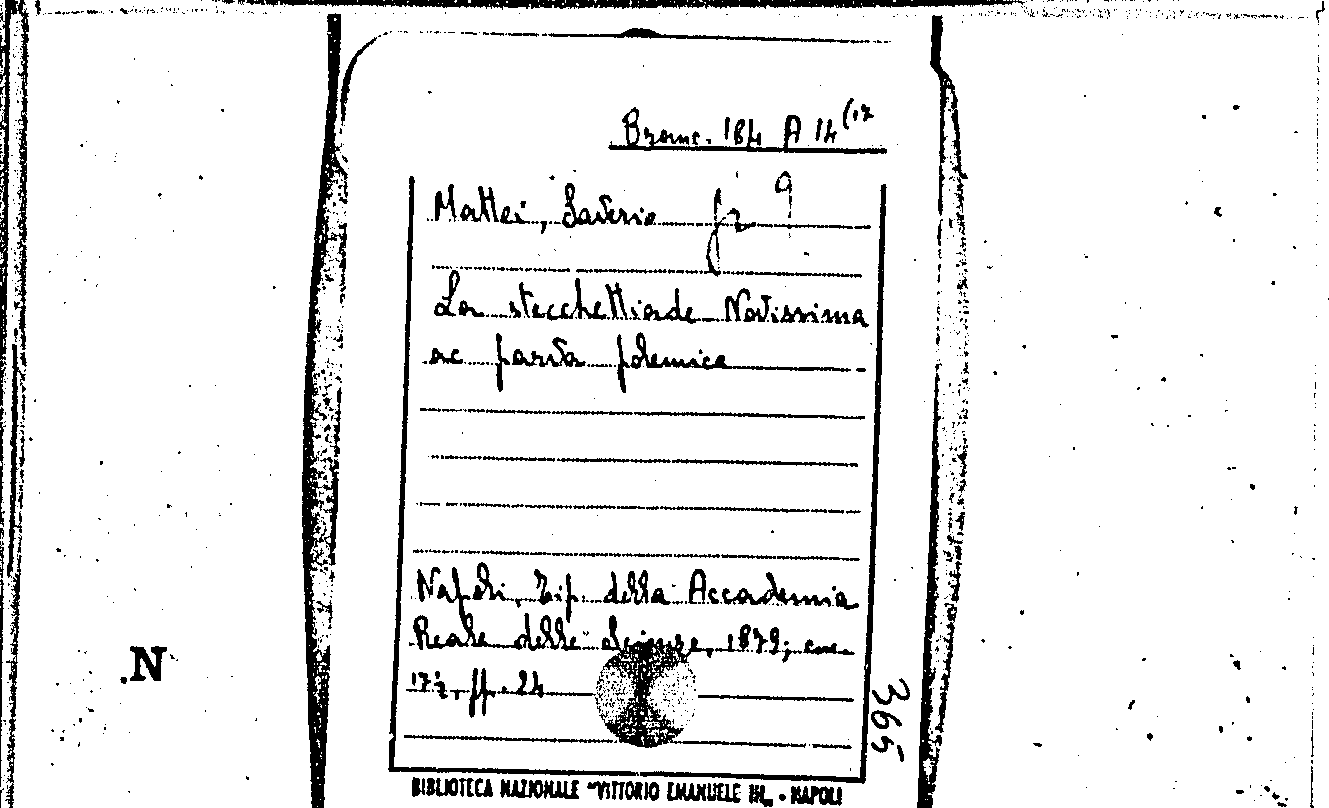 Branc. 184 A 14 (17
Mattei, Saverio jr 9
La stecchettiade Novissima
ac parva polemica
Napoli, Tip. della Accademia
Reale delle Scienze, 1879; cm.
17½, pp. 24
365
.N
BIBLIOTECA NAZIONALE "VITTORIO EMANUELE III„ - NAPOLI